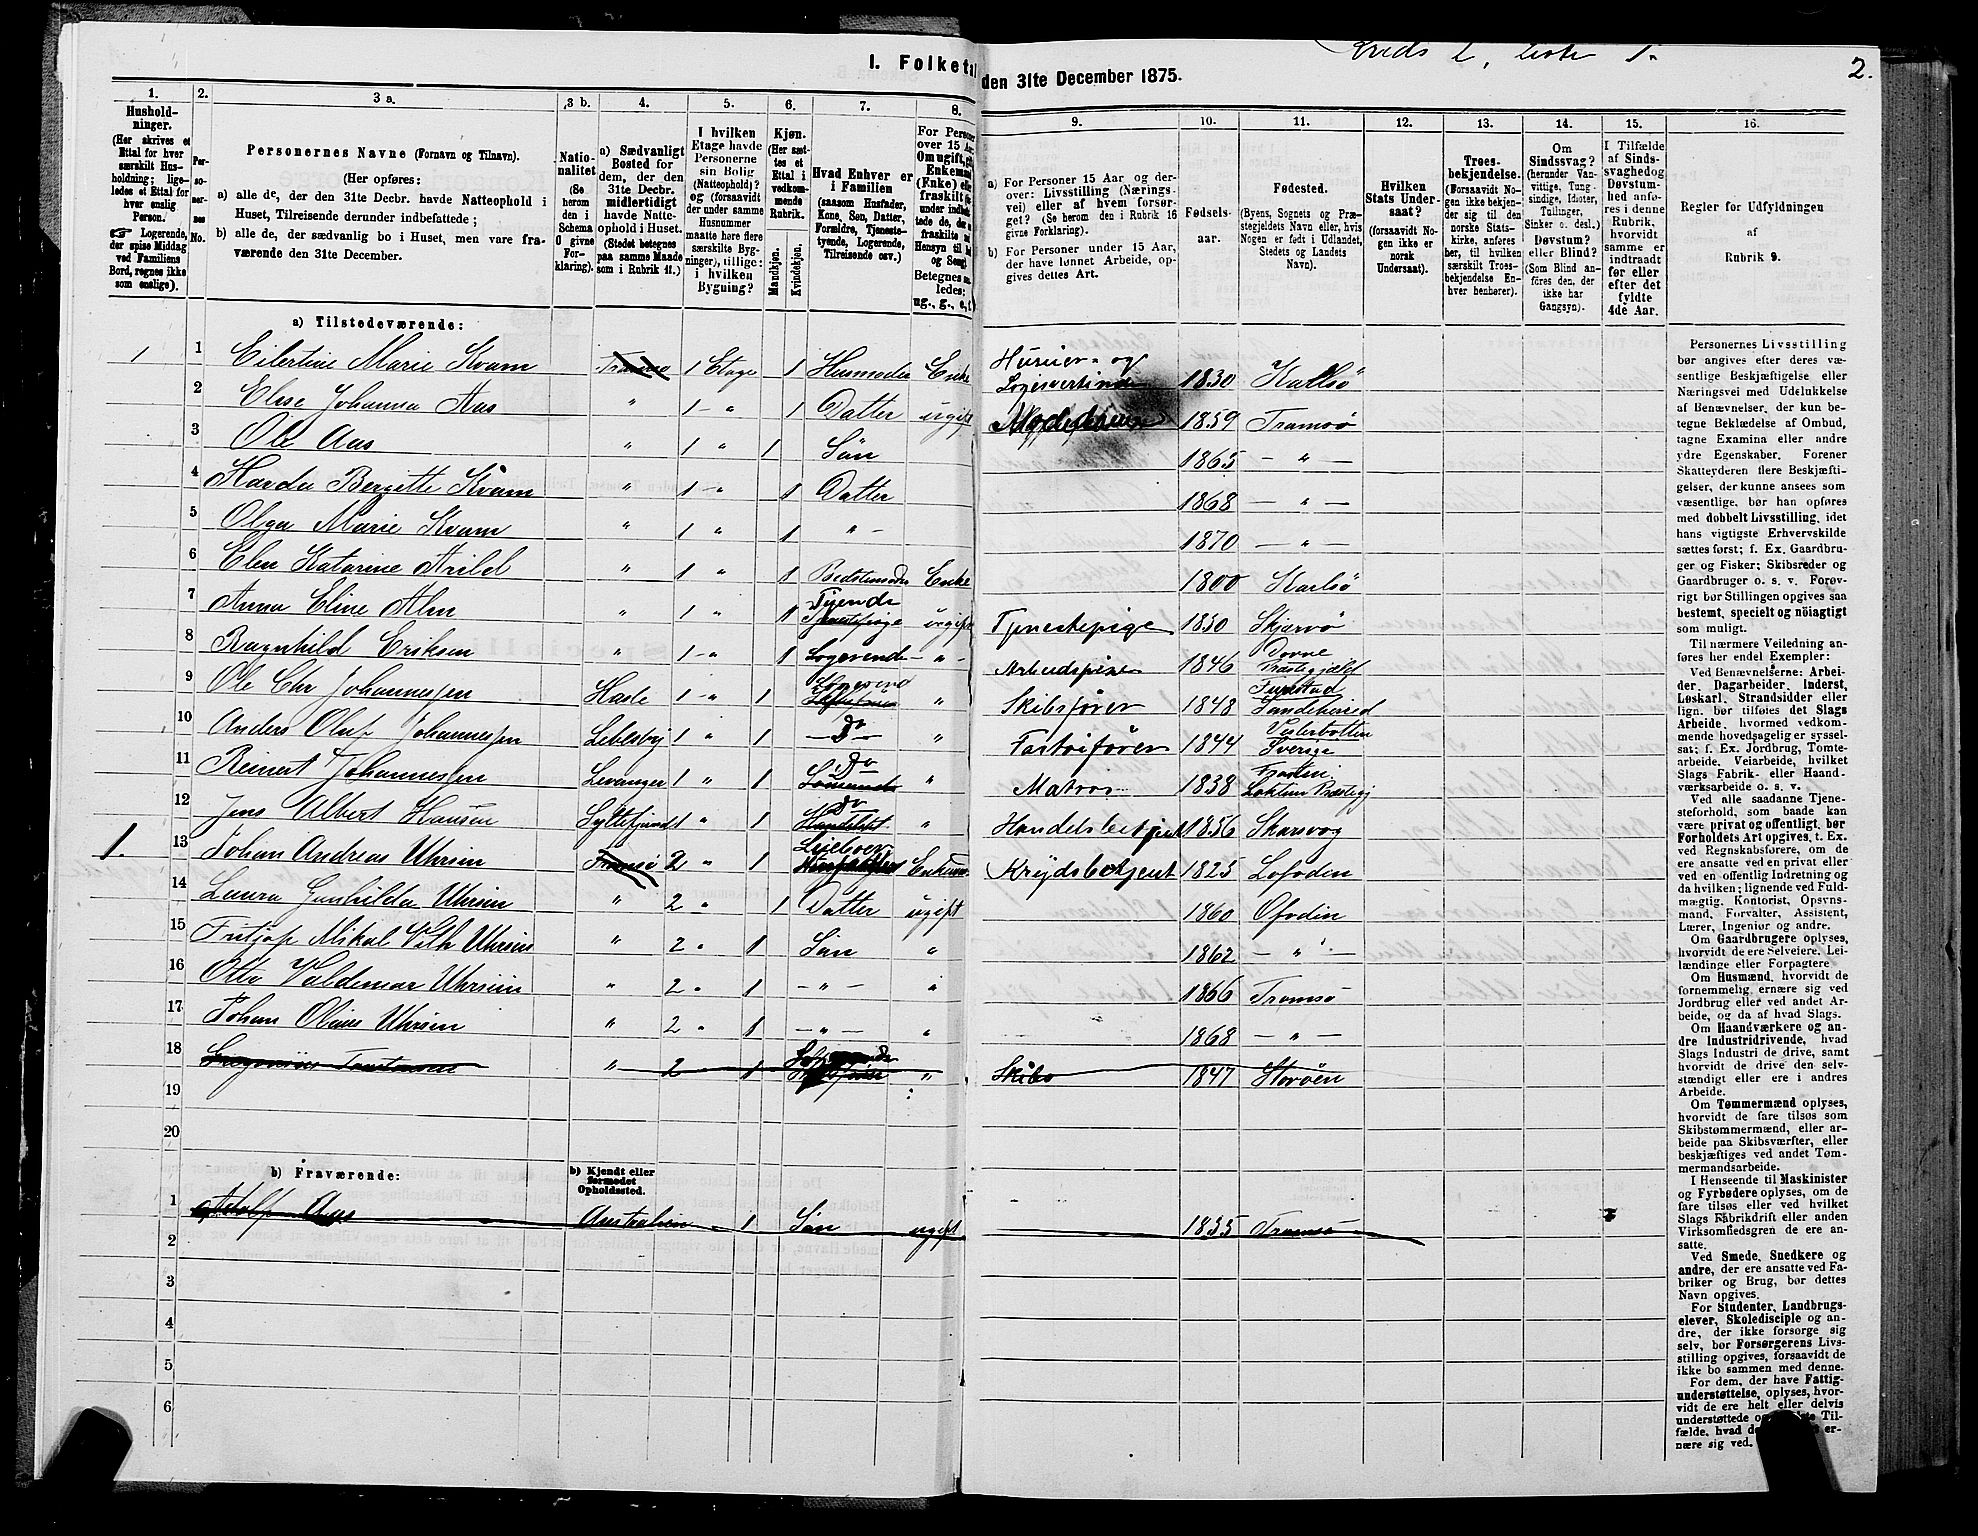 Kreds 2, liste 1.
2.
I. Folketal den 31te December 1875.
1.
Hushold-
ninger.
(Her skrives et
Ettal for hver
særskilt Hus-
holdning; lige-
ledes et Ettal for
hver enslig
Person.
Logerende,
der spise Middag
ved Familiens
Bord, regnes ikke
som enslige).
2.
Per-
so-
ner-
nes
No.
3 a.
Personernes Navne (Fornavn og Tilnavn).
(Her opføres:
a) alle de, der den 31te Decbr. havde Natteophold i
Huset, Tilreisende derunder indbefattede;
b) alle de, der sædvanlig bo i Huset, men vare fra-
værende den 31te December.
3 b.
Natio-
nalitet
(Se
herom
den i
Schema
O givne
For-
klaring).
4.
a) Sædvanligt
Bosted for
dem, der den
31te Decbr.
midlertidigt
havde Natte-
ophold i Huset.
(Stedet betegnes
paa samme Maade
som i Rubrik 11.)
5.
I hvilken
Etage havde
Personerne
sin Bolig
(Natteophold)?
og (forsaavidt
der under samme
Husnummer
maatte høre flere
særskilte Byg-
ninger), tillige:
i hvilken
Bygning?
6.
Kjøn.
(Her sæt-
tes et
Ettal i
vedkom-
mende
Rubrik.
Mandkjøn.
Kvindekjøn.
7.
Hvad Enhver er
i Familien
(saasom Husfader,
Kone, Søn, Datter,
Forældre, Tjeneste-
tyende, Logerende,
Tilreisende osv.).
8.
For Person
over 15 Aar
Om ugift, gift
Enkemand
(Enke) eller
fraskilt
9.
a) For Personer 15 Aar og der-
over: Livsstilling (Nærings-
vei) eller af hvem forsør-
get? (Se herom den i Rubrik 16
givne Forklaring).
b) For Personer under 15 Aar,
der have lønnet Arbeide, op-
gives dettes Art.
10.
Fødsels-
aar.
11.
Fødested.
(Byens, Sognets og Præ-
stegjeldets Navn eller, hvis
Nogen er født i Udlandet,
Stedets og Landets
Navn).
12.
Hvilken
Stats Under-
saat?
(forsaavidt No-
gen ikke er
norsk
Undersaat).
13.
Troes-
bekjendelse.
(Forsaavidt No-
gen ikke bekjen-
der sig til den
norske Stats-
kirke, anføres
her, til hvilken
særskilt Troes-
bekjendelse En-
hver henhører).
14.
Om
Sindssvag?
(herunder Van-
vittige, Tung-
sindige, Idioter,
Tullinger,
Sinker o. desl.)
Døvstum?
eller Blind?
(Som Blind an-
føres den, der
ikke har
Gangsyn).
15.
I Tilfælde
af Sinds-
svaghed og
Døvstum-
hed anfø-
res i denne
Rubrik,
hvorvidt
samme er
indtraadt
før eller
efter det
fyldte
4de Aar.
16.
Regler for Udfyldningen
af
Rubrik 9.
a) Tilstedeværende:
1 1 Eilertine Marie Kvam Tromsø 1 Etage 1 Husmoder Enke Huseier- og Logisvertinde 1830 Karlsø
2 Elise Johanna Aas " 1 - " 1 Datter ugift 1859 Tromsø
3 Ole Aas " 1 " 1 Søn 1865 - " -
4 Harda Bergitte Kvam " 1 - " 1 Datter 1868 - " -
5 Olga Marie Kvam " 1 " 1 " - 1870 - " -
6 Elen Katarine Arild " 1 " 1 Bedstemoder Enke 1800 Karlsø
7 Anna Eline Alm " 1 " 1 Tyende Tjenestepige ugift Tjenestepige 1850 Skjærvø
8 Ragnhild Eriksen " 1 - " 1 Logerende - " - Arbeidspige 1846 Præstegjæld
9 Ole Chr Johannesen 1 - " 1 Logerend " Skibsfører 1848 Sandeherred
10 Anders Oluf Johannesen Lebesby 1 " 1 do " 1844 Vesterbotten Sverige
11 Reinert Johannesen Levanger 1 " 1 Do " Matros 1838 Frosten
12 Jens Albert Hansen Syltefjord 1 " 1 do " Handelsbetjent 1856 Skarsvog
1. 13 Johan Andreas Uhrsin Tromsø 2 " 1 Husfader Enkem. Krydsbetjent 1825 Lofoden
14 Laura Gunhilda Uhrsin " 2 " 1 Datter ugift 1860 Ofoden
15 Fritjof Mikal Vilh Uhrsin " 2 " 1 Søn " 1862 - " -
16 Otto Valdemar Uhrsin " 2 " 1 - " - " 1866 Tromsø
17 Johan Olaus Uhrsin " 2 " 1 - " - " 1868 - " -
18 " 2 1 " Skibs 1847 Storøen
19
20
b) Fraværende:
b) Kjendt eller
formodet
Opholdssted.
1 Adolf Aas Australien 1 Søn ugift 1855 Tromsø
2
3
4
5
6
Personernes Livsstilling
bør angives efter deres væ-
sentlige Beskjæftigelse eller
Næringsvei med Udelukkelse
af Benævnelser, der kun be-
tegne Beklædelse af Ombud,
tagne Examina eller andre
ydre Egenskaber. Forener
Skatteyderen flere Beskjæfti-
gelser, der kunne ansees som
væsentlige, bør han opføres
med dobbelt Livsstilling, idet
hans vigtigste Erhvervskilde
sættes først; f. Ex. Gaardbru-
ger og Fisker; Skibsreder og
Gaardbruger o. s. v. Forøv-
rigt bør Stillingen opgives saa
bestemt, specielt og nøiagtigt
som muligt.
Til nærmere Veiledning an-
føres her endel Exempler:
Ved Benævnelserne: Arbei-
der, Dagarbeider, Inderst,
Løskarl, Strandsidder eller
lign. bør tilføies det Slags
Arbeide, hvormed vedkom-
mende hovedsagelig er syssel-
sat; f. Ex. Jordbrug, Tomte-
arbeide, Veiarbeide, hvilket
Slags Fabrik- eller Haand-
værksarbeide o. s. v.
Ved alle saadanne Tjene-
steforhold, som baade kan
være privat og offentligt, bør
Forholdets Art opgives, t. Ex.
ved Regnskabsførere, om de
ere ansatte ved en privat eller
ved en offentlig Indretning og
da hvilken; lignende ved Fuld-
mægtig, Kontorist, Opsyns-
mand, Forvalter, Assistent,
Lærer, Ingeniør og andre.
Om Gaardbrugere oplyses,
hvorvidt de ere Selveiere, Lei-
lændinge eller Forpagtere
Om Husmænd, hvorvidt de
fornemmelig ernære sig ved
Jordbrug eller ved andet Ar-
beide, og da af hvad Slags.
Om Haandværkere og an-
dre Industridrivende, hvad
Slags Industri de drive, samt
hvorvidt de drive den selv-
stændigt eller ere i andres
Arbeide.
Om Tømmermænd oplyses,
hvorvidt de fare tilsøs som
Skibstømmermænd, eller ar-
beide paa Skibsværfter, eller
beskjæftiges ved andet Tøm-
mermandsarbeide.
I Henseende til Maskinister
og Fyrbødere oplyses, om de
fare tilsøs eller ved hvilket
Slags Fabrikdrift eller anden
Virksomhedsgren de ere an-
satte.
Ved Smede, Snedkere og
andre, der ere ansatte ved Fa-
briker og Brug, bør dettes
Navn opgives.
For Studenter, Landbrugs-
elever, Skoledisciple og an-
dre, der ikke forsørge sig
selv, bør Forsørgerens Livs-
stilling opgives, forsaavidt de
ikke bo sammen med denne.
For dem, der have Fattig-
understøttelse, oplyses, hvor-
vidt de ere helt eller delvis
understøttede og
fælde, hvad de
nære sig ved.